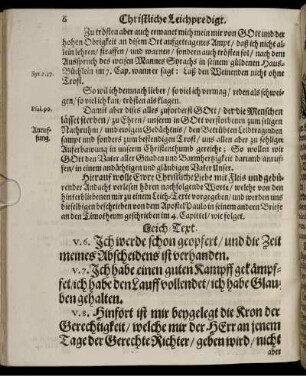 6 Christliche Leichpredigt.
Zu trösten aber auch ermanet mich mein mir von GOtt und der
hohen Obrigkeit an disem Ort aufgetragenes Ampt / daß ich nicht al-
lein lehren / straffen / und warnen / sondern auch trösten sol / nach dem
Ausspruch des weisen Mannes Syrachs in seinem güldenen Haus-
Syr. 7. 37. Büchlein im 7. Cap. wann er sagt: Laß den Weinenden nicht ohne
Trost.
So viel ich demnach lieber / so viel ich vermag / reden als schwei-
gen / so viel ich kan / trösten als klagen.
Psal. 90. Damit aber dises alles zuforderst GOtt / der die Menschen
lässet sterben / zu Ehren / unserm in GOtt verstorbenen zum seligen
Anruf- Nachruhm / und ewigen Gedächtnis / den Betrübten Leidtragenden
fung. sampt und sonders zum beständigen Trost / uns allen aber zu seliger
Auferbawung in unserm Christenthumb gereiche; So wollen wir
GOtt den Vater aller Gnaden und Barmhertzigkeit darumb anruf-
fen / in einem andächtigen und gläubigen Vater Unser.
Hierauf wolle Ewre Christliche Liebe mit Fleis und gebü-
render Andacht verlesen hören nachfolgende Worte / welche von den
unserigen mir zu einem Leich-Texte vorgegeben / und werden uns
dieselbigen beschrieben von dem Apostel Paulo in seinem andern Briefe
an den Timotheum geschrieben im 4. Capittel / wie folget.
Leich-Text.
v. 6. Ich werde schon geopfert / und die Zeit
meines Abscheidens ist verhanden.
v. 7. Ich habe einen guten Kampff gekämpf-
fet / ich habe den Lauff vollendet / ich habe Glau-
ben gehalten.
v. 8. Hinfort ist mir beygelegt die Kron der
Gerechtigkeit / welche mir der HErr an jenem
Tage der Gerechte Richter / geben wird / nicht
aber